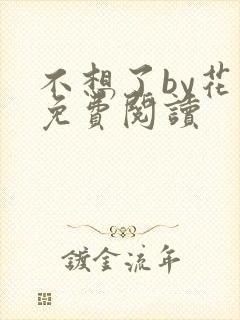 不想了by花
免費閱讀
鍍金流年